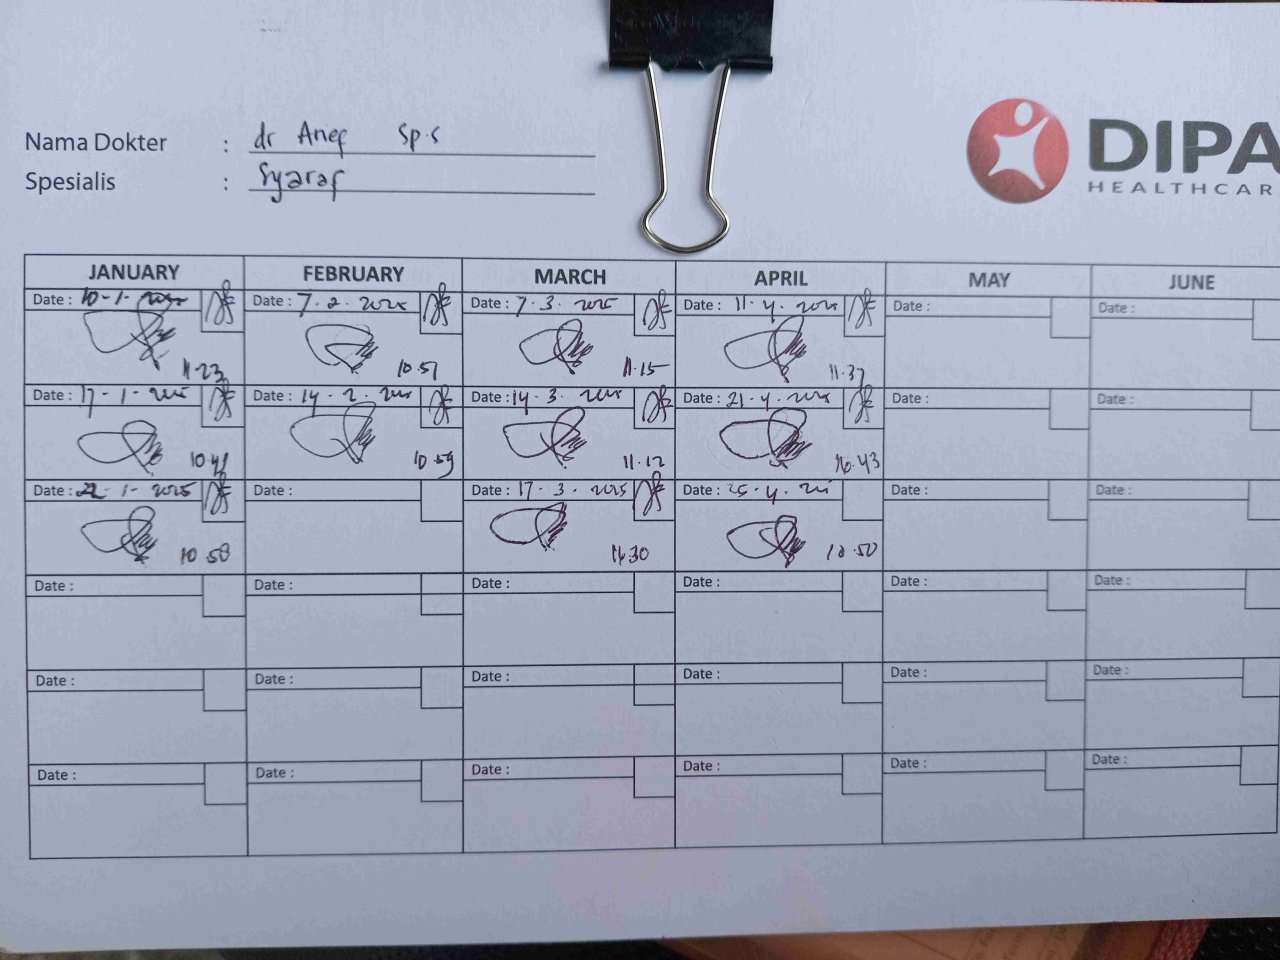 Nama Dokter : dr Anef Sp.S
Spesialis : Syaraf
DIPA
HEALTHCAR
JANUARY FEBRUARY MARCH APRIL MAY JUNE
Date : 10-1- Date : 7-2-2025 Date : 7-3-2025 Date : 11-4-2025 Date : Date :
11.23 10.51 11.15 11.37
Date : 17-1- Date : 14-2- Date : 14-3-2025 Date : 21-4-2025 Date : Date :
10.41 10.59 11.12 16.43
Date : 22-1-2025 Date : Date : 17-3-2025 Date : 25-4- Date : Date :
10.58
Date : Date : Date : Date : Date : Date :
Date : Date : Date : Date : Date : Date :
Date : Date : Date : Date : Date : Date :